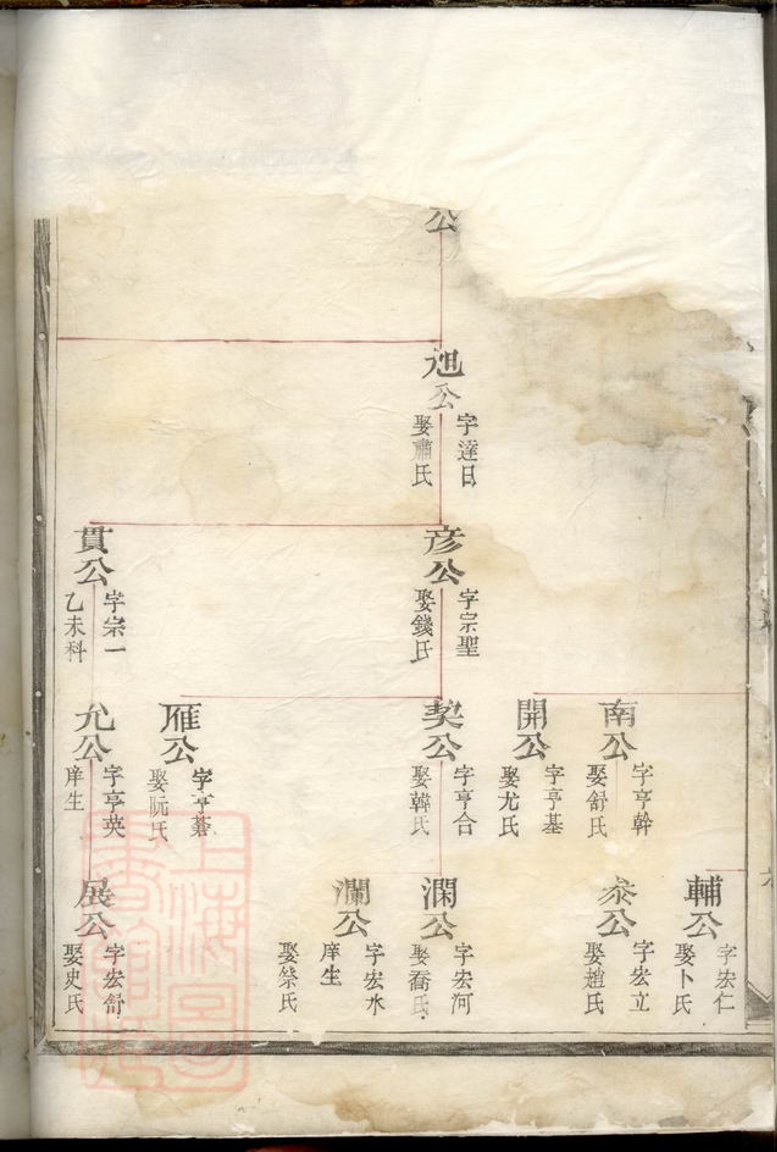 公
旭公
字達日
娶蕭氏
彥公
字宗聖
娶錢氏
貫公
字宗一
乙未科
南公
字亨幹
娶舒氏
開公
字亨基
娶尤氏
契公
字亨合
娶韓氏
雁公
字亨
娶阮氏
允公
字亨英
庠生
輔公
字宏仁
娶卜氏
泰公
字宏立
娶趙氏
澗公
字宏河
娶喬氏
瀾公
字宏水
庠生
娶 氏
展公
字宏舒
娶史氏
上海圖書館藏